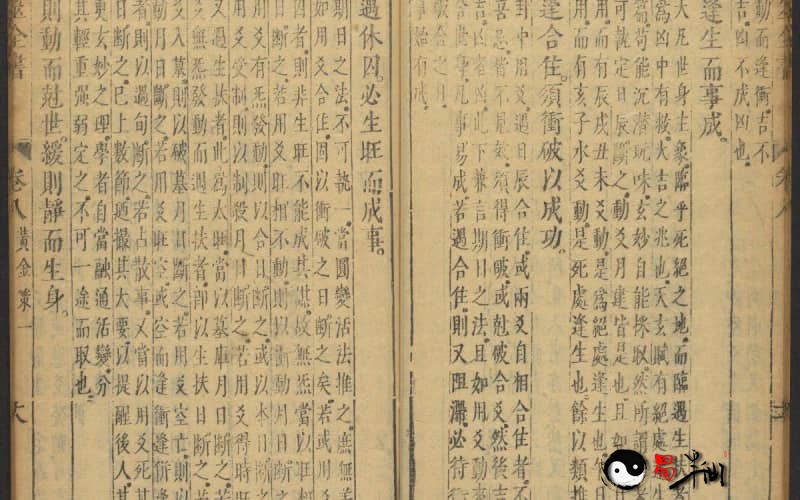 動而逢衝吉不
吉凶不成凶也
逢生而事成。
大凡世身主象臨乎死絕之地而臨遇生扶
為凶中有救大吉之兆也天玄賦有絕處
篇苟能沉潛玩味玄妙自能採取然所謂
可執定日辰斷之動爻月建皆是也且如
用而有辰戌丑未爻動是為絕處逢生也
用而有亥子水爻動是死處逢生也餘以類推
逢合住。須衝破以成功。
卦中用爻遇日辰合住或兩爻自相合住者不
喜忌皆不見效須得衝破或尅破合爻然後吉
吉凶者凶此下兼言期日之法且如用爻動
世者凡事易成若遇合住則又阻滯必待
事始有成
遇休囚。必生旺而成事。
期日之法不可執一當圓變活法推之庶無差
如用爻合住固以衝破之日斷之矣若或用爻
因者則非生旺不能成其事故無炁當以用爻
日斷之若用爻旺相不動則以衝動月日斷
用爻有炁發動則以合日斷之或以本日斷之
用爻受制則以制殺月日斷之若用爻得時旺
又遇生扶者此為太旺當以墓庫月日斷之若
爻無炁發動而遇生扶者即以生扶日斷之若
爻入墓則以破墓月日斷之若用爻空亡則以
月日斷之若用爻旺空或空而逢衝
者則以過旬斷之若占散事又當以用爻死其
日斷之已上數節迺撮其大要以提醒後人其
更玄妙之理學者自當融通活變分
其輕重強弱定之不可一途而取也
則動而尅世。緩則靜而生身。
全書 卷八 黃金策一 六
易